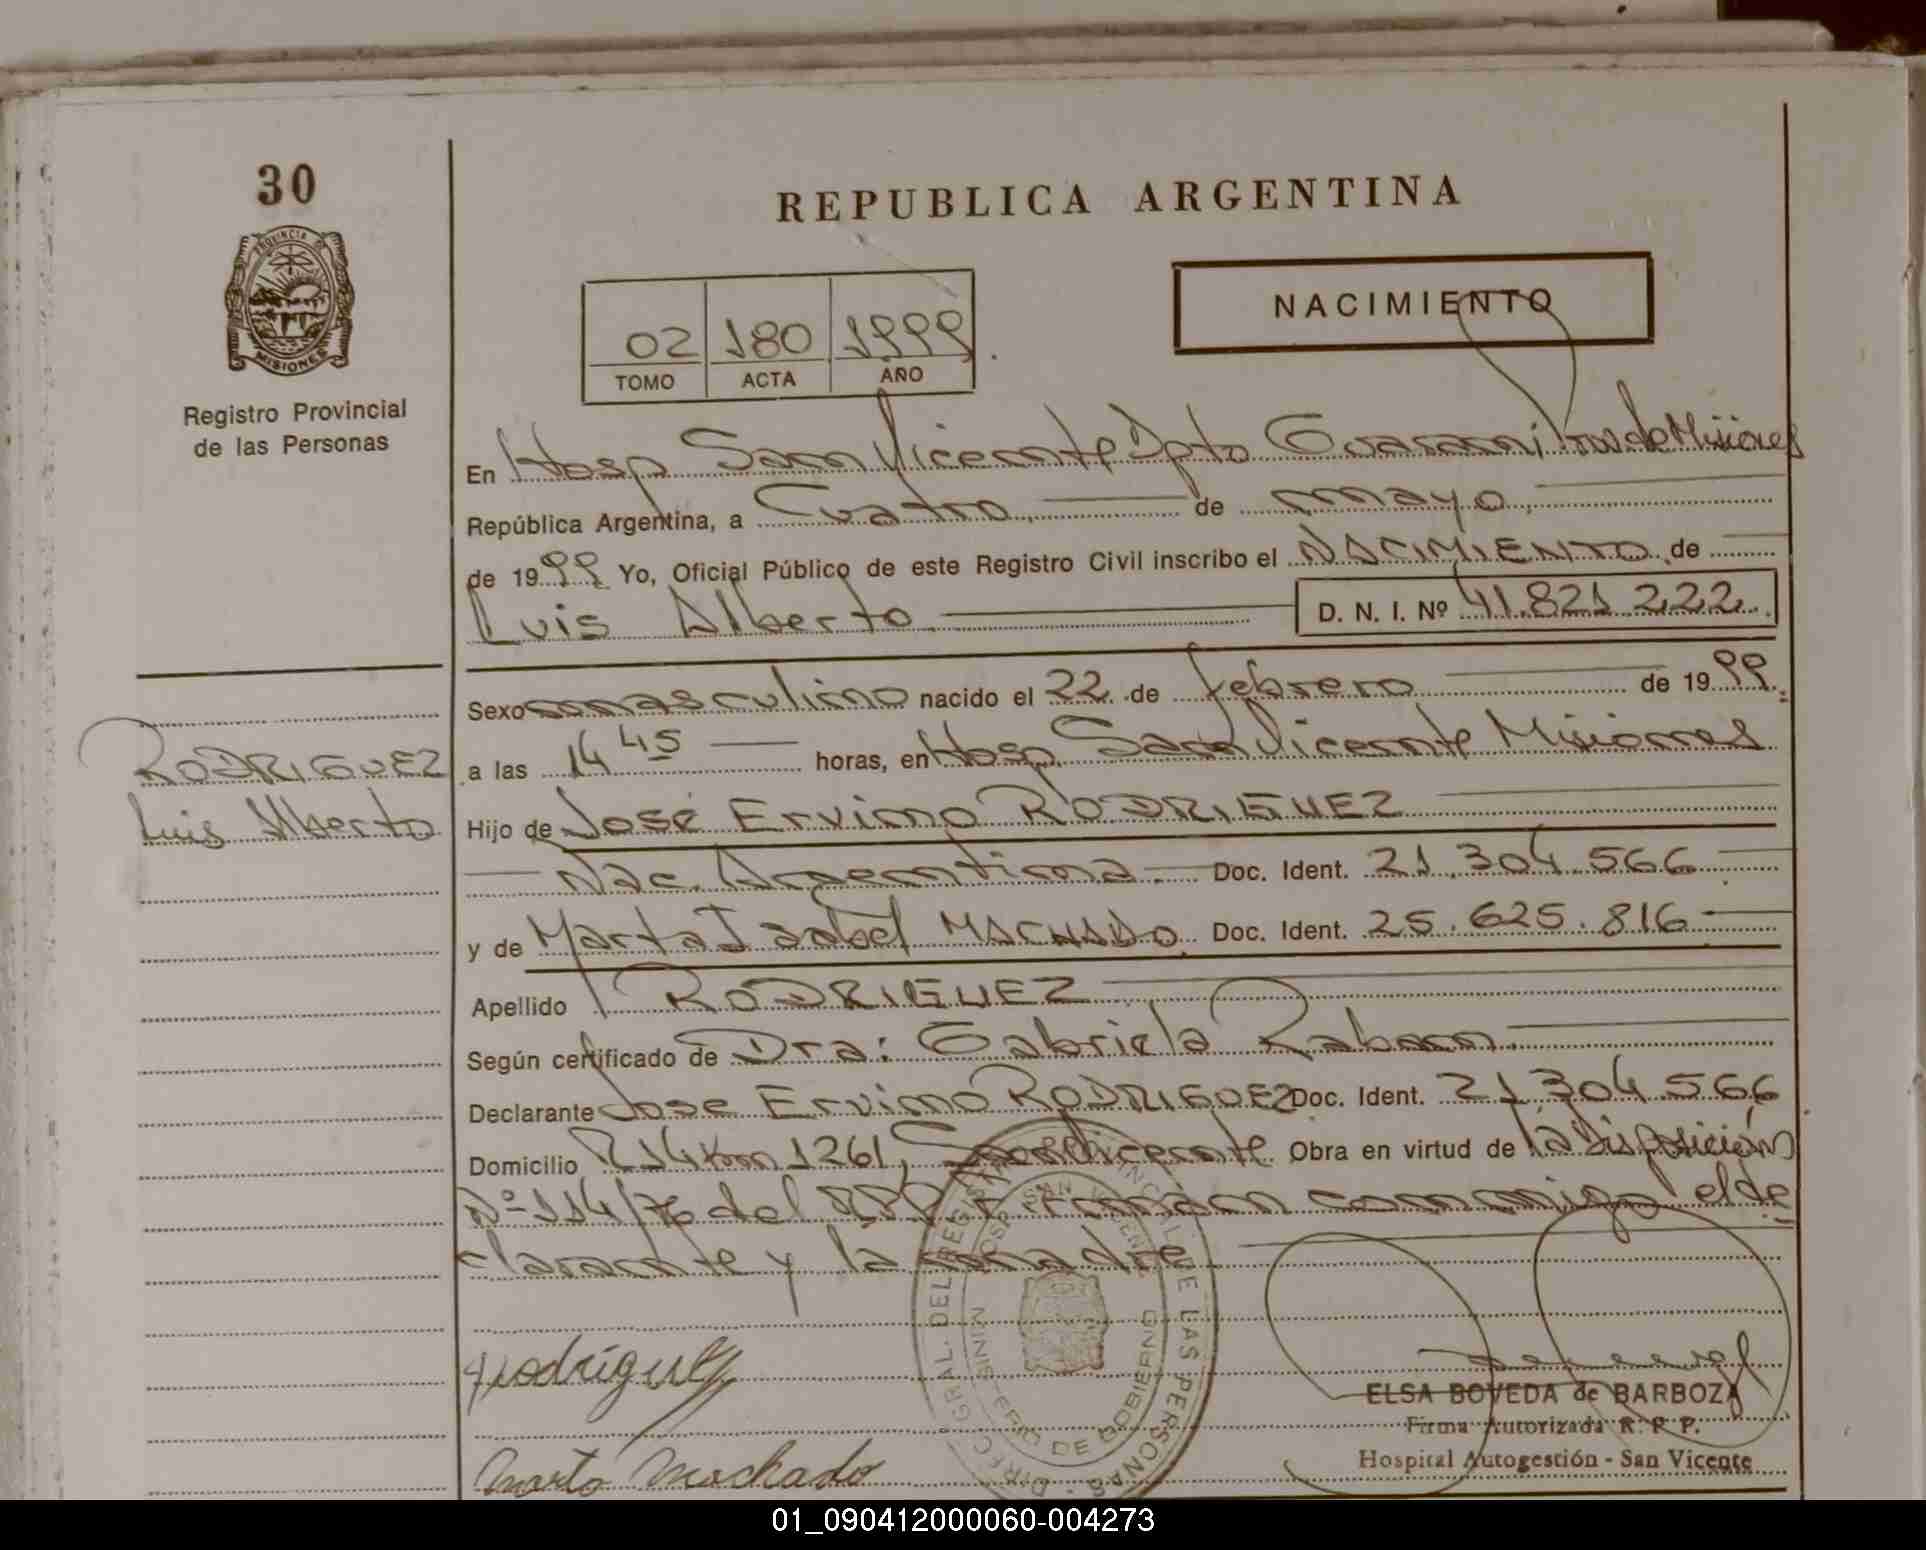 30
PROVINCIA DE
MISIONES
Registro Provincial
de las Personas
REPUBLICA ARGENTINA
02 180 1999
TOMO ACTA AÑO
NACIMIENTO
En Hosp San Vicente Dpto Guarani Prov de Misiones
República Argentina, a Cuatro de mayo
de 1999 Yo, Oficial Público de este Registro Civil inscribo el NACIMIENTO de
Luis Alberto D. N. I. Nº 41.821 222
Sexo masculino nacido el 22 de febrero de 1999
RODRIGUEZ
Luis Alberto
a las 14 45 horas, en Hosp. San Vicente Misiones
Hijo de José Ervino RODRIGUEZ
Nac. Argentina Doc. Ident. 21.304.566
y de Marta Isabel MACHADO Doc. Ident. 25.625.816
Apellido RODRIGUEZ
Según certificado de Dra: Gabriela Raban
Declarante Jose Ervino RODRIGUEZ Doc. Ident. 21.304.566
Domicilio R14 Km 1261, San Vicente Obra en virtud de la Disposición
Nº 114/76 del RPP Firman conmigo el de
clarante y la madre
DIREC. GRAL. DEL REGISTRO PROVINCIAL DE LAS PERSONAS
HOSP. SAN VICENTE
MINISTERIO DE GOBIERNO
Rodriguez
Marta Machado
ELSA BOVEDA de BARBOZA
Firma Autorizada R. P. P.
Hospital Autogestión - San Vicente
01_090412000060-004273